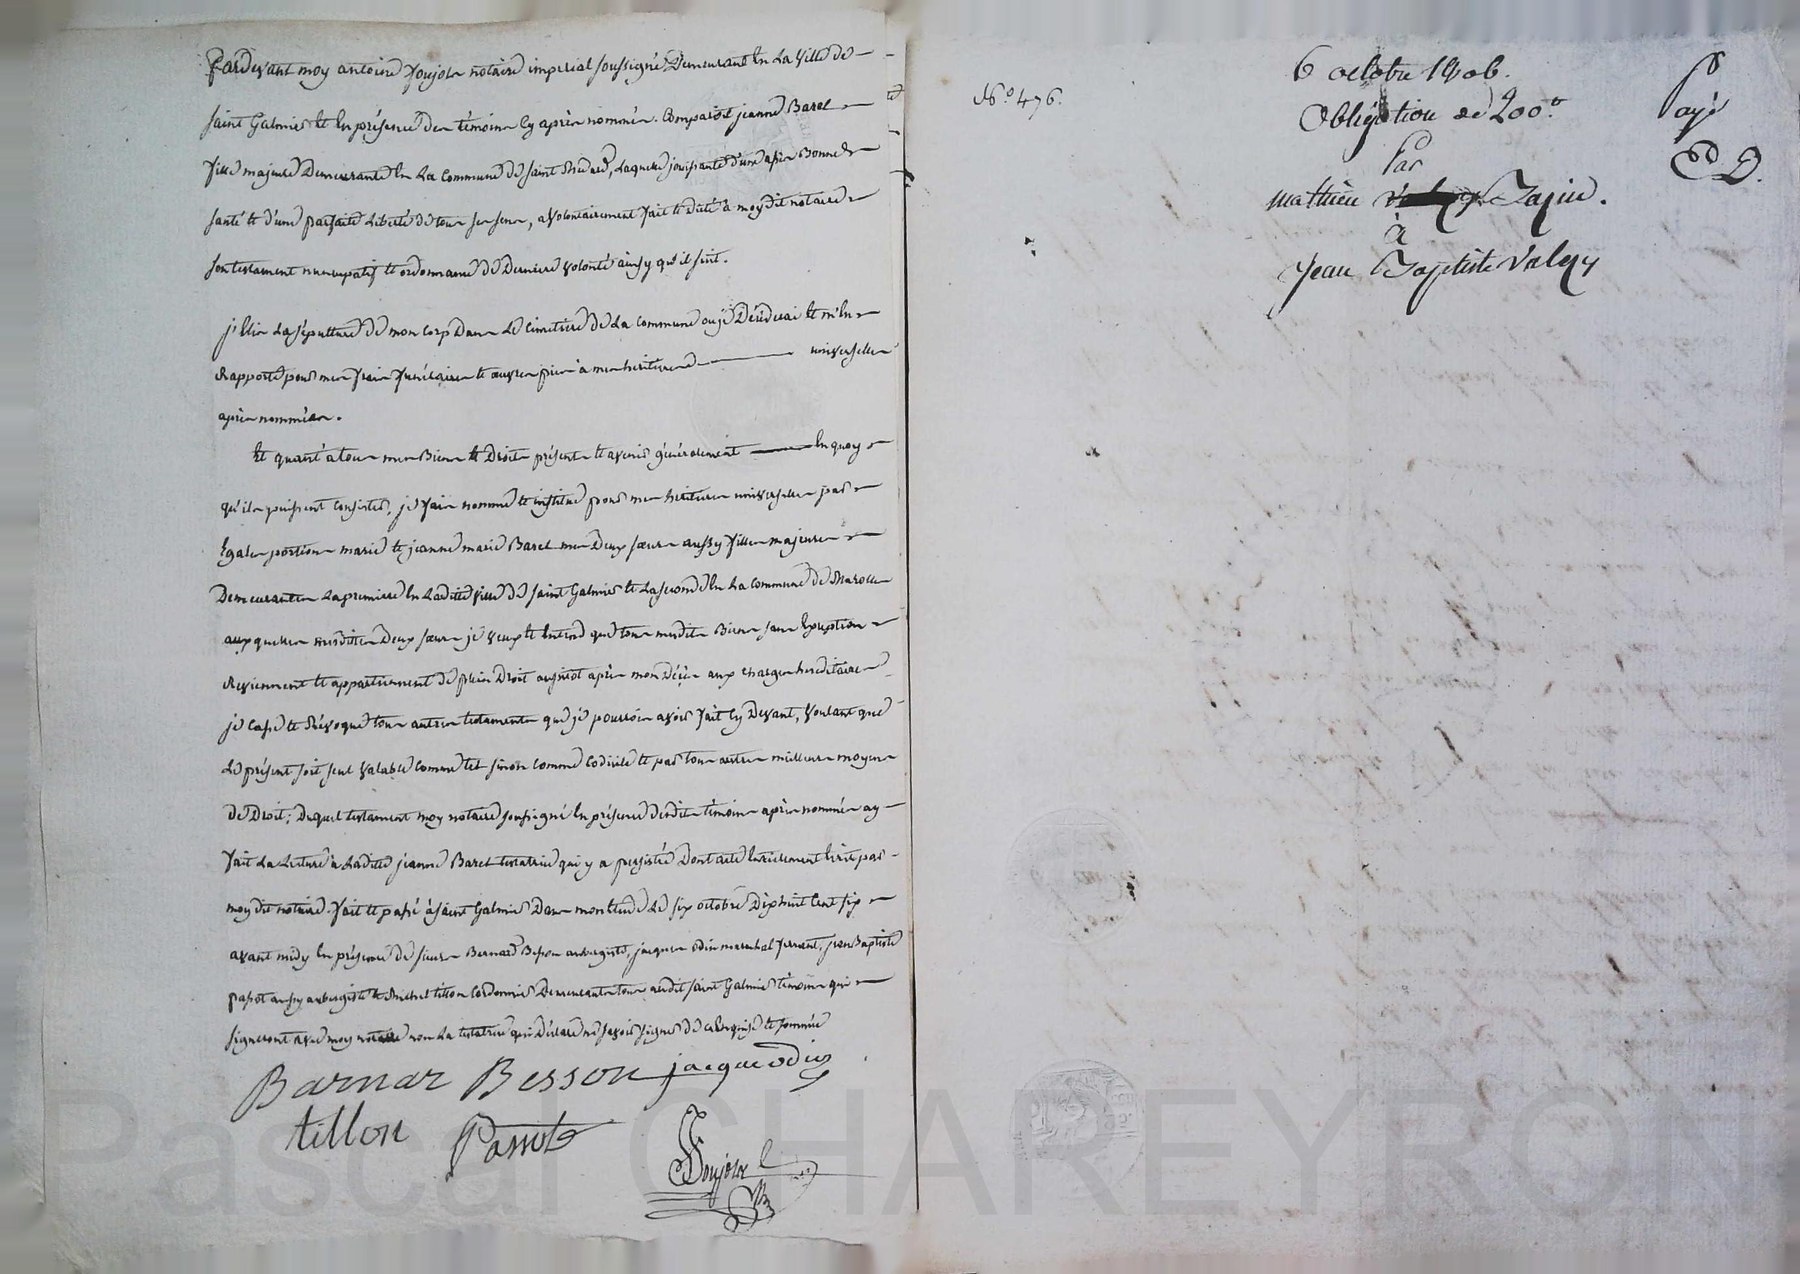 Pardevant moy antoine Joujon notaire imperial soussigné Demeurant En La Ville de
saint Galmier Et En présence des témoins Cy après nommés. Comparoit jeanne Barel
fille majeure Demeurante En La Commune de saint Medard, Laquelle jouissante d'une assés Bonne
santé Et d'une parfaite Liberté de tous ses sens, a Volontairement fait Et dicté à moy dit notaire
son testament nuncupatif Et ordonnance de Derniere Volonté ainsy qu'il suit.
j'Elis La sépulture de mon corp Dans Le Cimetière de La Commune ou je Déscéderai Et m'En
Rapporte pour mes frais funéraires Et œuvres pies à mes heritieres universelles
après nommées.
Et quant à tous mes Biens Et Droits présents Et avenir généralement En quoy
qu'ils puissent Consister, je fais nomme Et institue pour mes heritieres universelles par
Egales portions marie Et jeanne marie Barel mes Deux sœurs aussy filles majeures
Demeurantes La premiere En Laditte Ville de saint Galmier Et La seconde En La Commune de Marols
auxquelles mesdites Deux sœurs je Veux Et Entend que tous mesdits Biens sans Exception
Reviennent Et appartiennent de plein Droit aussitot après mon Décès aux charges hereditaires
je Casse Et Révoque tous autres testaments que je pourrois avoir fait Cy Devant, Voulant que
Le présent soit seul Valable Comme tel sinon Comme Codicile Et par tous autres meilleurs moyens
de Droit; Duquel testament moy notaire soussigné En présence desdits témoins après nommés ay
fait La Lecture à Ladite jeanne Barel testatrice qui y a persistée Dont acte Entierement Ecrit par
moy dit notaire. fait Et passé à saint Galmier Dans mon Etude Le six octobre Dix huit Cent six
avant midy En présence de sieurs Bernard Besson aubergiste, jacques odin marechal ferrant, jean Baptiste
passot aussy aubergiste Et Michel tillon Cordonnier Demeurants tous audit saint Galmier témoins qui
signeront avec moy notaire non La testatrice qui a Déclaré ne savoir signer de ce Enquise Et sommée
Barnar Besson jacque odin
tillon Passot
Joujon
N.° 476.
6 octobre 1806.
Obligation de 200tt
Par
Mathieu Zapin.
à
Jean Baptiste Valezy
Payé
D.
Pascal CHAREYRON